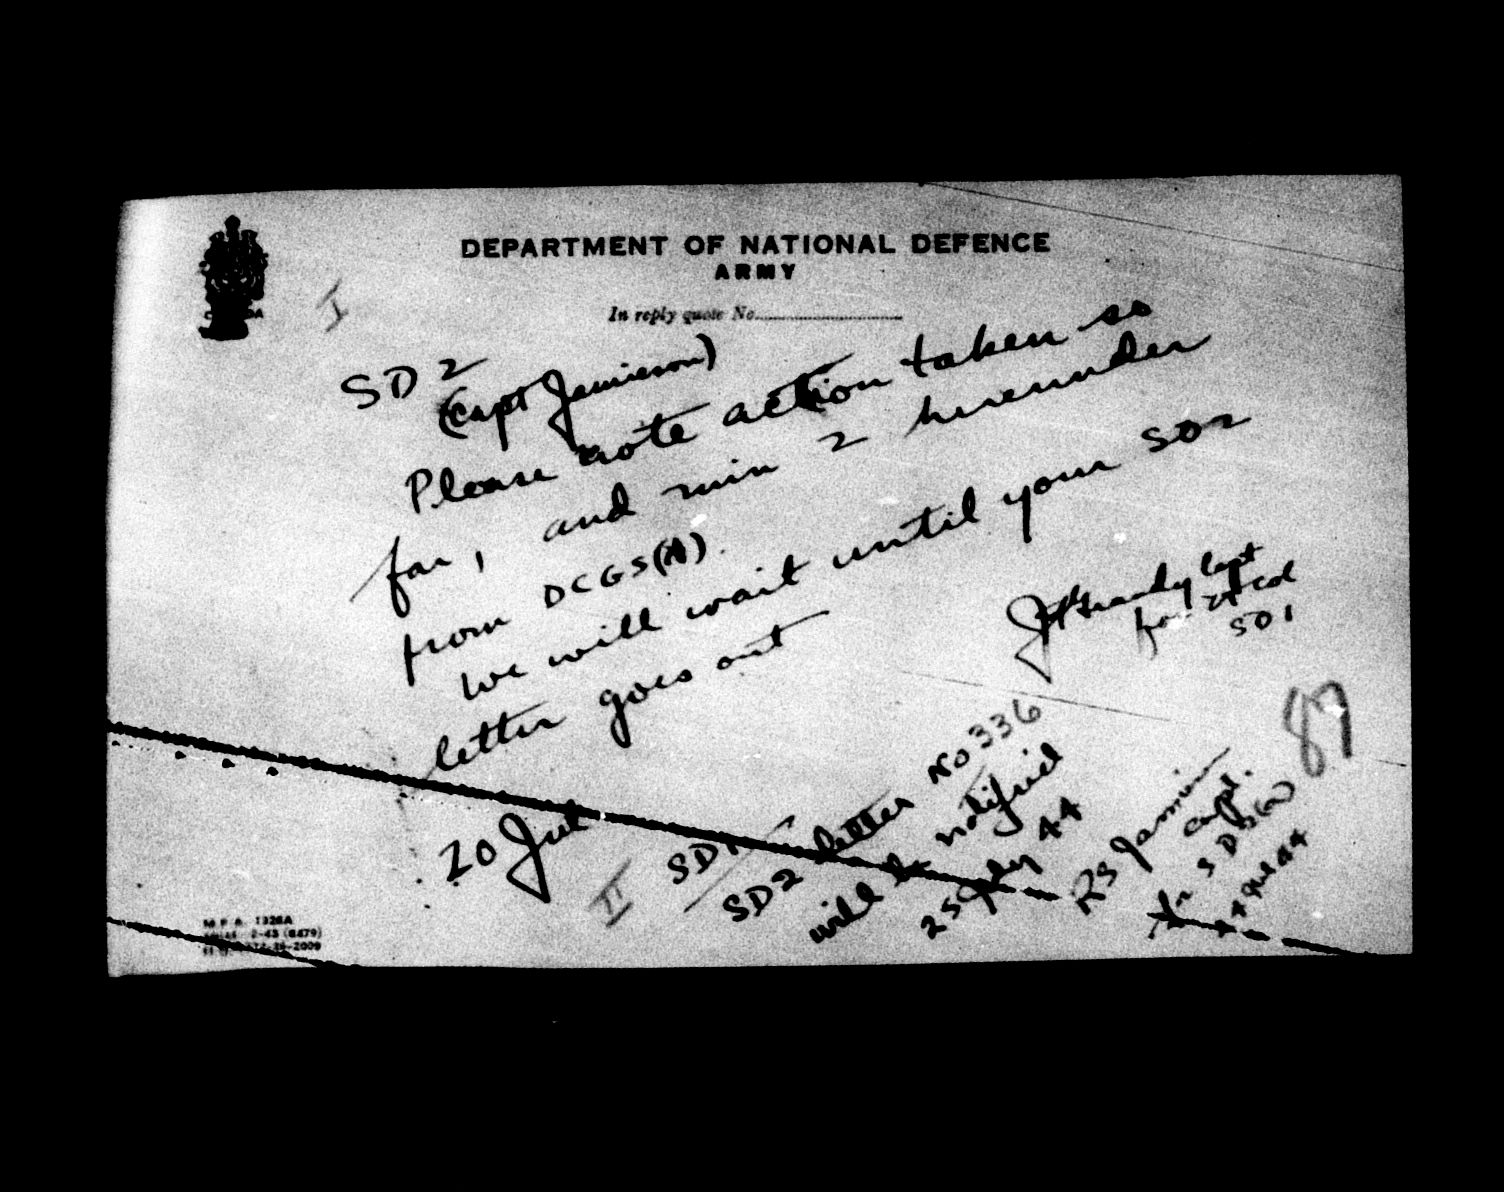 DEPARTMENT OF NATIONAL DEFENCE
ARMY
In reply quote No
I
SD 2
(Capt Jamieson)
Please note action taken so
far, and min 2 hereunder
from DCGS(A).
We will wait until your SD2
letter goes out
Capt
for Lt Col
SD1
20 Jul
87
II
SD1
SD2 letter No 336
will be notified
25 July 44
RS Jamieson
Capt.
for SD2(a)
24 Jul 44
1326A
2-43 (6479)